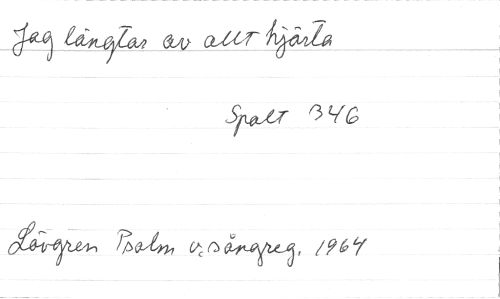 Jag längtar av allt hjärta
Spalt 346
Lövgren Psalm o. sångreg. 1964